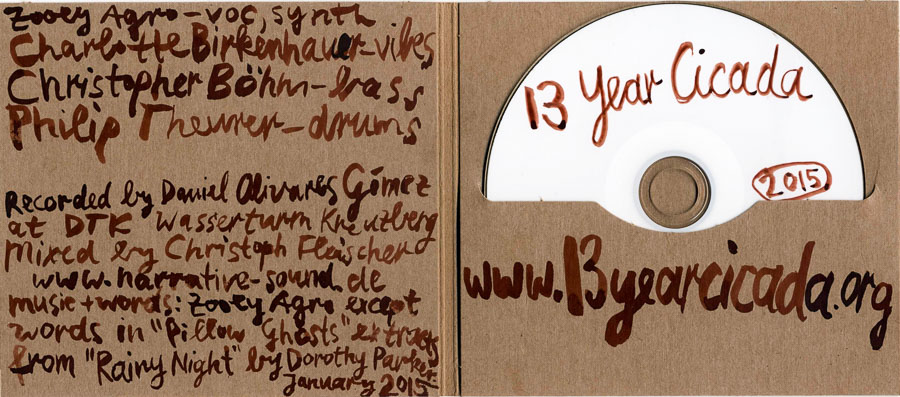 Zooey Agro-voc, synth
Charlotte Birkenhauer-vibes
Christopher Böhm-bass
Philip Theurer-drums
Recorded by Daniel Olivares Gómez
at DTK Wasserturm Kreuzberg
Mixed by Christoph Fleischer
www.narrative-sound.de
music+words: Zooey Agro except
words in "Pillow Ghosts" extracts
from "Rainy Night" by Dorothy Parker
January 2015
13 Year Cicada
2015
www.13yearcicada.org